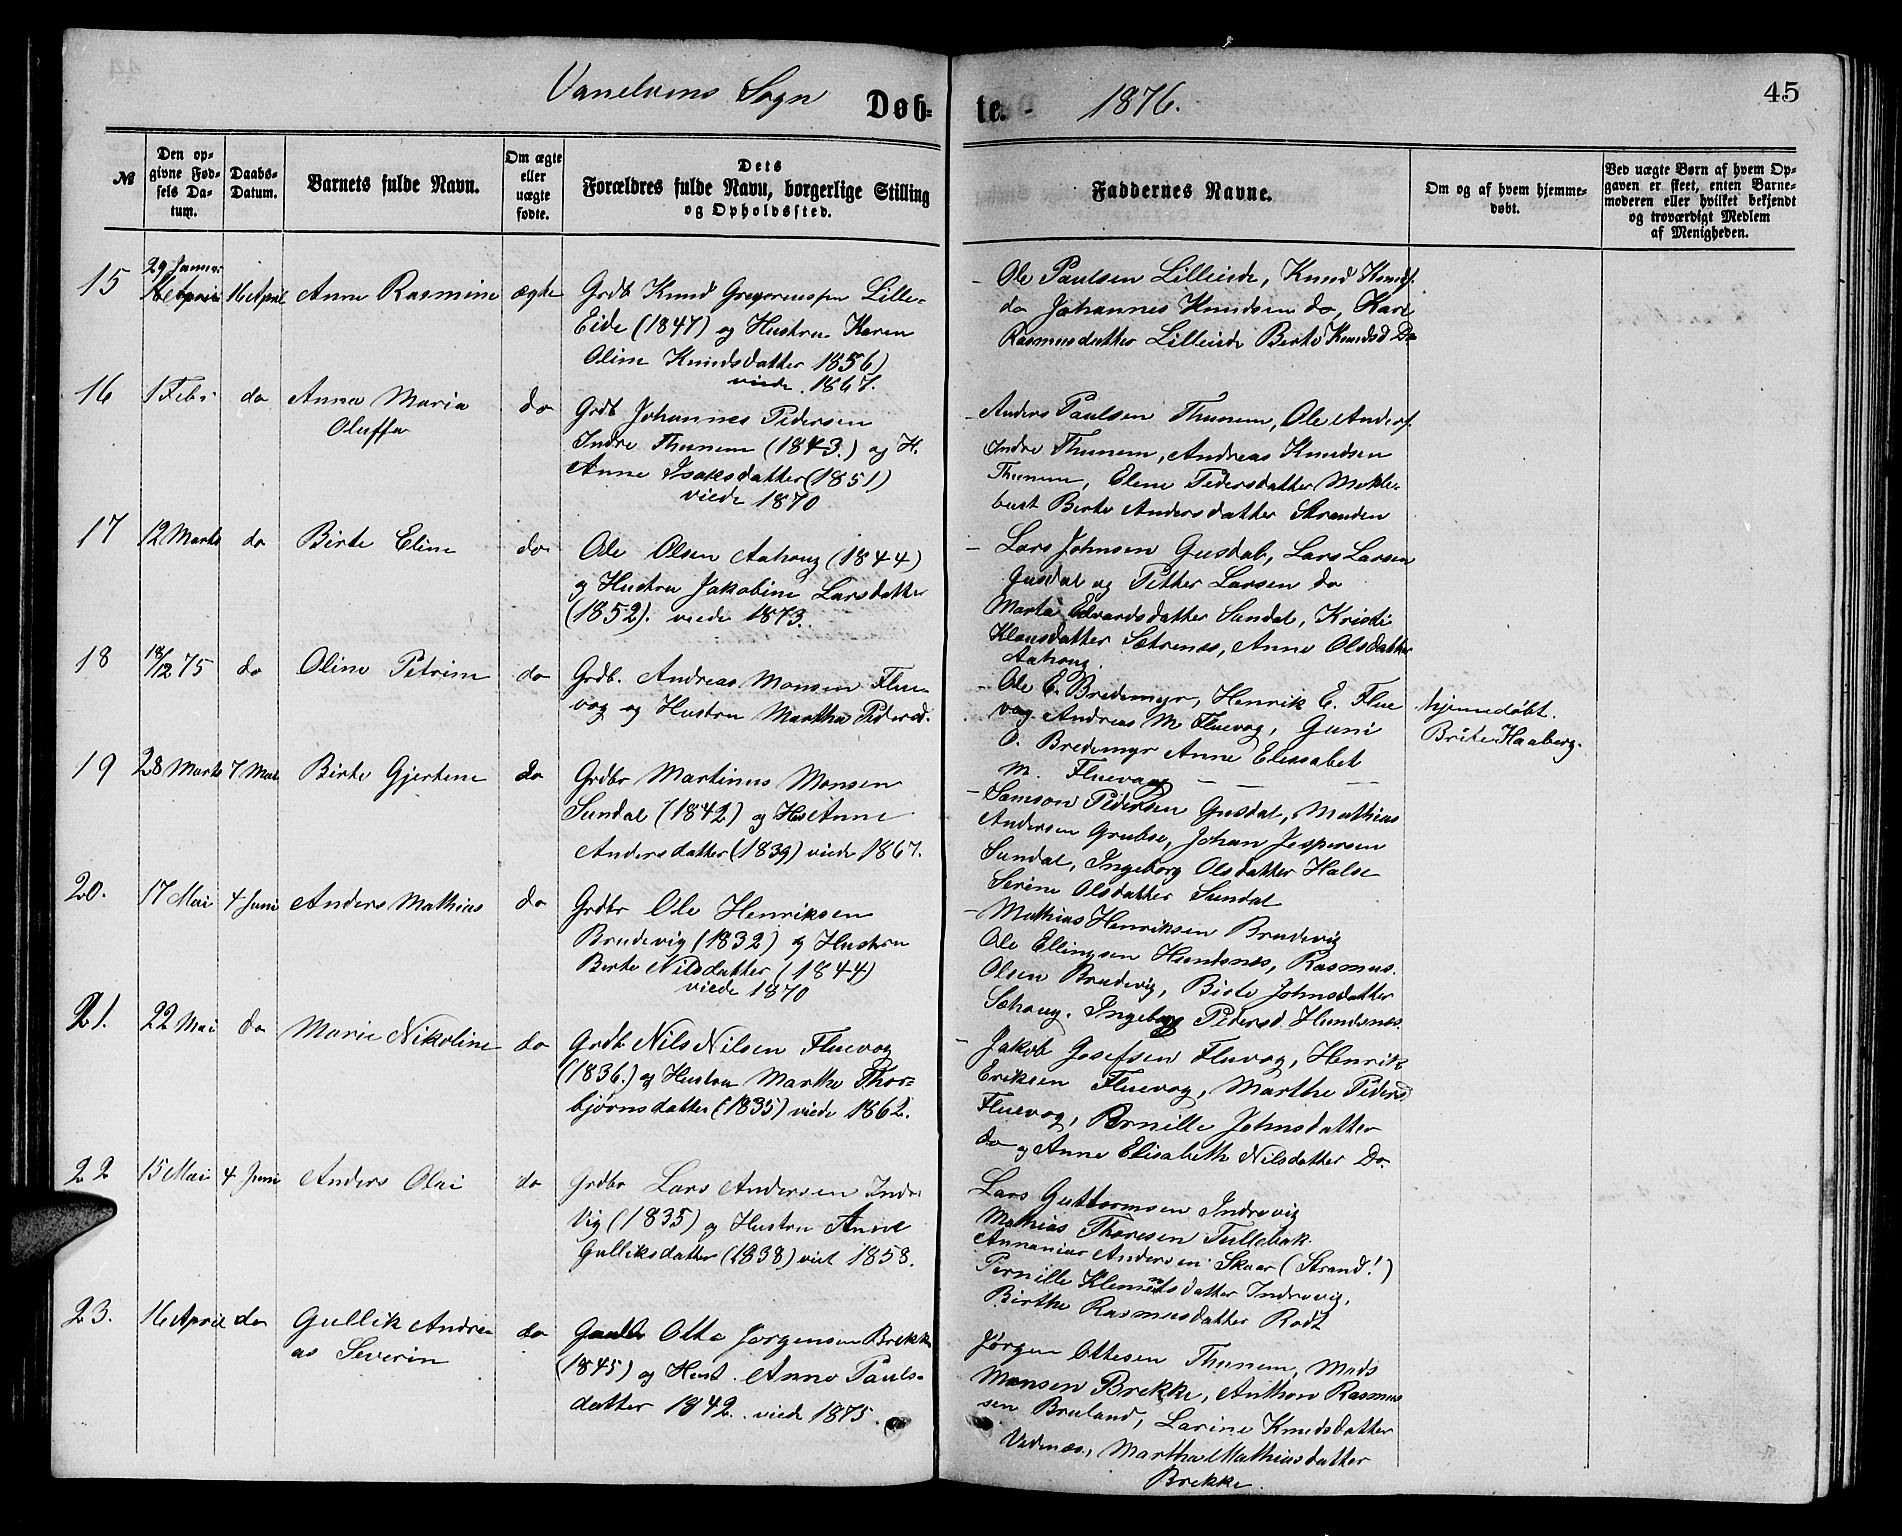 Vanelvens Sogn
Døb-
te.
1876.
45
№
Den op-
givne Fød-
sels Da-
tum.
Daabs-
Datum.
Barnets fulde Navn.
Om ægte
eller
uægte
fødte.
Dets
Forældres fulde Navn, borgerlige Stilling
og Opholdssted.
Faddernes Navne.
Om og af hvem hjemme-
døbt.
Ved uægte Børn af hvem Op-
gaven er skeet, enten Barne-
moderen eller hvilket bekjendt
og troværdigt Medlem
af Menigheden.
15
29 Januar
16 April
Anne Rasmine
ægte
Grdb Knud Gregoriussen Lille-
Eide (1847) og Hustru Karen
Oline Knudsdatter 1856)
viede 1867.
Ole Paulsen Lilleeide, Knud Knuds.
do Johannes Knudsen do, Kari
Rasmusdatter Lilleeide Birte Knudsd Do
16
1 Febr
do
Anna Maria
Oluffa
do
Grdb Johannes Pedersen
Indre Thunem (1843.) og H.
Anne Isaksdatter (1851)
viede 1870
Anders Paulsen Thunem, Ole Anders.
Indre Thunem, Andreas Knudsen
Thunem, Elene Pedersdatter Mekle-
bust Birte Andersdatter Stranden
17
12 Marts
do
Birte Eline
do
Ole Olsen Aahoug (1844)
og Hustru Jakobine Larsdatter
(1852). viede 1873.
Lars Johnsen Gusdal, Lars Larsen
Gusdal og Petter Larsen do
Marta Edvardsdatter Sundal, Kristi
Klausdatter Sætrenæs, Anne Olsdatter
Aahoug.
18
18/12 75
do
Oline Petrine
do
Grdb. Andreas Monsen Flue-
vog og Hustru Martha Pedersd.
Ole E. Brudemyr, Henrik E. Flue
vog. Andreas M Fluevog, Guni
O. Bredemyr Anne Elissabet
M. Fluevaag
hjemmedøbt.
Brite Haaberg.
19
28 Marts
7 Mai
Birte Gjertine
do
Grdbr Martinus Monsen
Sundal (1842) og Hus Anne
Andersdatter (1839) viede 1867.
Samson Pedersen Gusdal, Mathias
Andersen Grubse, Johan Jespersen
Sundal, Ingeborg Olsdatter Halse
Serine Olsdatter Sundal
20.
17 Mai
4 Juni
Anders Mathias
do
Grdbr Ole Henriksen
Brudevig (1832) og Hustru
Berte Nilsdatter (1844)
viede 1870
Mathias Henriksen Brudevig
Ole Ellingsen Hundsnes, Rasmus
Olsen Brudevig, Birte Johnsdatter
Sæhoug. Ingeborg Pedersd Hundsnes
21.
22 Mai
do
Marie Nikoline
do
Grdb Nils Nilsen Fluevog
(1836.) og Hustru Marthe Thor-
bjørnsdatter (1835) viede 1862.
Jakob Josefsen Fluvog, Henrik
Eriksen Fluevog, Marthe Pedersd
Fluevog, Pernille Johnsdatter
do og Anne Elisabeth Nilsdatter Do.
22
15 Mai
4 Juni
Anders Olai
do
Grdbr Lars Andersen Indre
Vig (1835) og Hustru Anne
Gulliksdatter (1838) viet 1858.
Lars Guttormsen Indrevig
Mathias Thoresen Tullebak
Annanias Andersen Skaar (Strand!)
Pernille Klementsdatter Indrevig,
Birthe Rasmusdatter Rodt
23.
16 April
do
Gullik Andre-
as Severin
do
Otto Jørgensen Brekke
(1845) og Hust. Anne Pauls-
datter 1842. viede 1875.
Jørgen Ottesen Thunem, Mads
Monsen Brekke, Anthon Rasmus
sen Bruland, Larine Knudsdatter
Vednæs, Martha Mathiasdatter
Brekke.